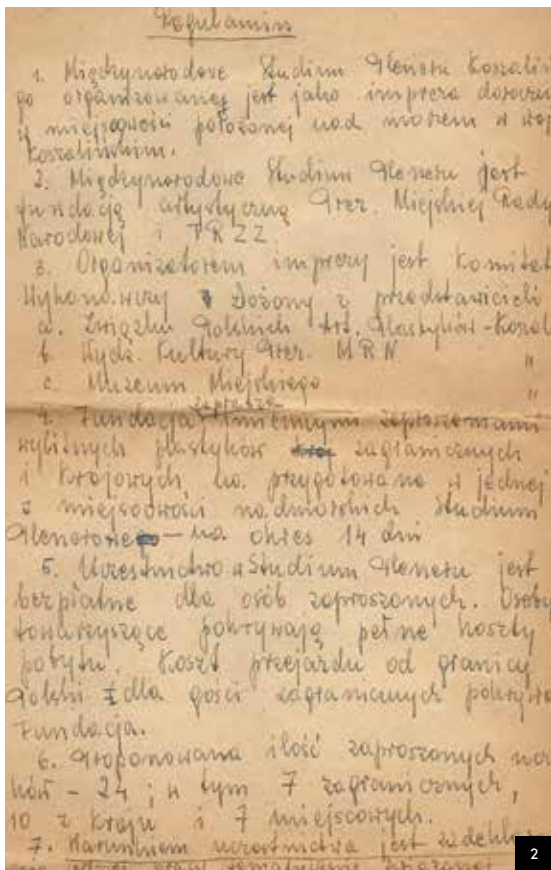 Regulamin
1. Międzynarodowe Studium Pleneru Koszaliń
go organizowanej jest jako impreza dorocz
w miejscowości położonej nad morzem w woj
Koszalińskim.
2. Międzynarodowe Studium Pleneru jest
fundacją artystyczną Prez. Miejskiej Rady
Narodowej i TRZZ
3. Organizatorem imprezy jest Komitet
Wykonawczy złożony z przedstawicieli
a. Związku Polskich Art. Plastyków - Koszal
b. Wydz. Kultury Prez. MRN "
c. Muzeum Miejskiego "
zaprasza
4. Fundacja imiennymi zaproszeniami
wybitnych plastyków zagranicznych
i krajowych na przygotowane w jednej
z miejscowości nadmorskich Studium
Plenerowe — na okres 14 dni
5. Uczestnictwo w Studium Pleneru jest
bezpłatne dla osób zaproszonych. Osoby
towarzyszące pokrywają pełne koszty
pobytu. Koszt przejazdu od granicy
Polski dla gości zagranicznych pokrywa
Fundacja.
6. Proponowana ilość zaproszonych
ków - 24 ; w tym 7 zagranicznych,
10 z kraju i 7 miejscowych.
7. Warunkiem uczestnictwa jest
2